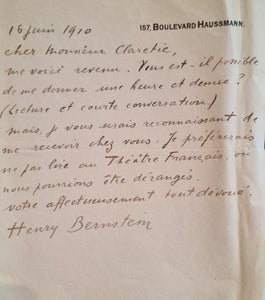 16 juin 1910
157, BOULEVARD HAUSSMANN.
cher Monsieur Claretie,
me voici revenu. Vous est-il possible
de me donner une heure et demie ?
(lecture et courte conversation.)
mais, je vous serais reconnaissant de
me recevoir chez vous. Je préfèrerais
ne pas lire au Théâtre Français, où
nous pourrions être dérangés.
votre affectueusement tout dévoué.
Henry Bernstein